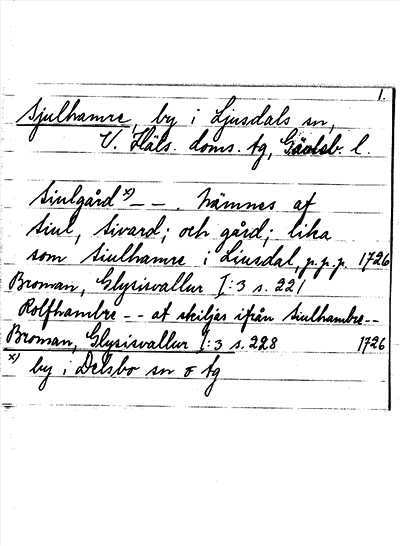 1.
Sjulhamre, by i Ljusdals sn,
V. Häls. doms. tg, Gävleb. l.
Siulgård x) – – . nämnes af
Siul, Sivard; och gård; lika
som Siulhamre i Liusdal, p.p.p. 1726
Broman, Glysisvallur I:3 s. 221
Rolfhambre – – at skiljes ifrån Siulhambre – –
Broman, Glysisvallur I:3 s. 228 1726
x) by i Delsbo sn o tg